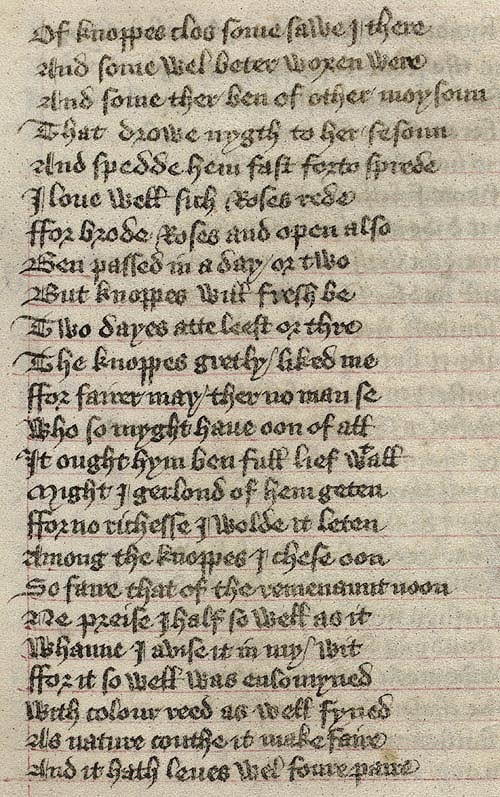 Of knoppes clos some sawe I there
And some wel beter woxen were
And some ther ben of other moysoun
That drowe nygth to her sesoun
And spedde hem fast forto sprede
I loue well sich Roses rede
ffor brode Roses and open also
Ben passed in a day / or two
But knoppes will fresh be
Two dayes atte leest or thre
The knoppes gretly / liked me
ffor fairer may / ther no man se
Who so myght haue oon of all
It ought hym ben full lief wtall
Might I gerlond of hem geten
ffor no richesse I wolde it leten
Among the knoppes I chese oon
So faire that of the remenaunt noon
Ne preise I half so well as it
Whanne I avise it in my / wit
ffor it so well was enlomyned
With colour reed as well fyned
As nature couthe it make faire
And it hath leues wel foure paire